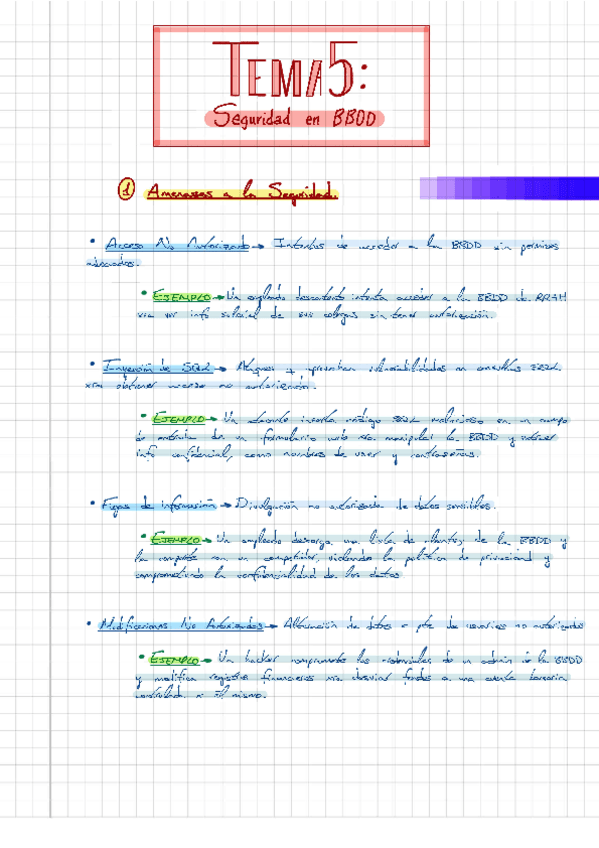 TEMA 5:
Seguridad en BBDD
1 Amenazas a la Seguridad.
• Acceso No Autorizado → Intentos de acceder a la BBDD sin permisos
adecuados.
• EJEMPLO → Un empleado descontento intenta acceder a la BBDD de RRHH
para ver info salarial de sus colegas sin tener autorización.
• Inyección de SQL → Ataques q aprovechan vulnerabilidades en consultas SQL
para obtener acceso no autorización.
• EJEMPLO → Un atacante inserta código SQL malicioso en un campo
de entrada de un formulario web para manipular la BBDD y extraer
info confidencial, como nombres de user y contraseñas.
• Fugas de información → Divulgación no autorizada de datos sensibles.
• EJEMPLO → Un empleado descarga una lista de clientes de la BBDD y
la comparte con un competidor, violando la política de privacidad y
comprometiendo la confidencialidad de los datos
• Modificaciones No Autorizadas → Alteración de datos x pte de usuarios no autorizados
• EJEMPLO → Un hacker compromete las credenciales de un admin de la BBDD
y modifica registros financieros para desviar fondos a una cuenta bancaria
controlada x él mismo.